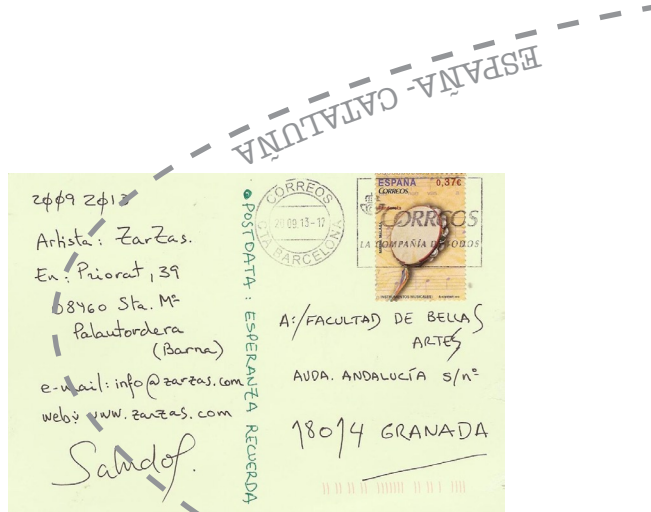 ESPAÑA- CATALUÑA
2009 2013
Artista: ZarZas.
En: Priorat, 39
08460 Sta. Mª
Palautordera
(Barna)
e-mail: info@zarzas.com
web: www.zarzas.com
Saludos.
• POSTDATA : ESPERANZA RECUERDA
CORREOS
20 09. 13-12
CTA BARCELONA
ESPAÑA 0,37€
CORREOS
CORREOS
LA COMPAÑÍA DE TODOS
INSTRUMENTOS MUSICALES
A:/FACULTAD DE BELLAS
ARTES
AVDA. ANDALUCÍA s/nº
18014 GRANADA